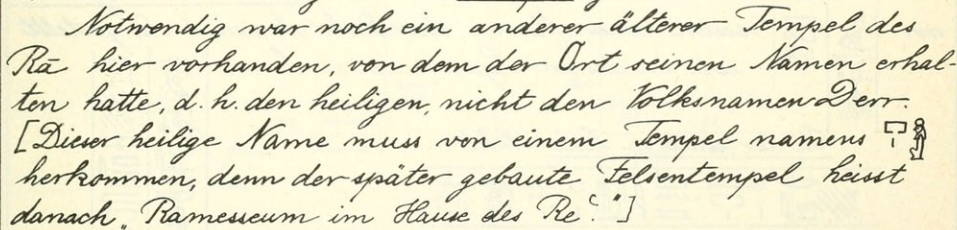 Notwendig war noch ein anderer älterer Tempel des
Rā hier vorhanden, von dem der Ort seinen Namen erhal-
ten hatte, d. h. den heiligen, nicht den Volksnamen Derr.
[Dieser heilige Name muss von einem Tempel namens 𓉐𓏤𓁛
herkommen, denn der später gebaute Felsentempel heisst
danach „Ramesseum im Hause des Reʿ."]